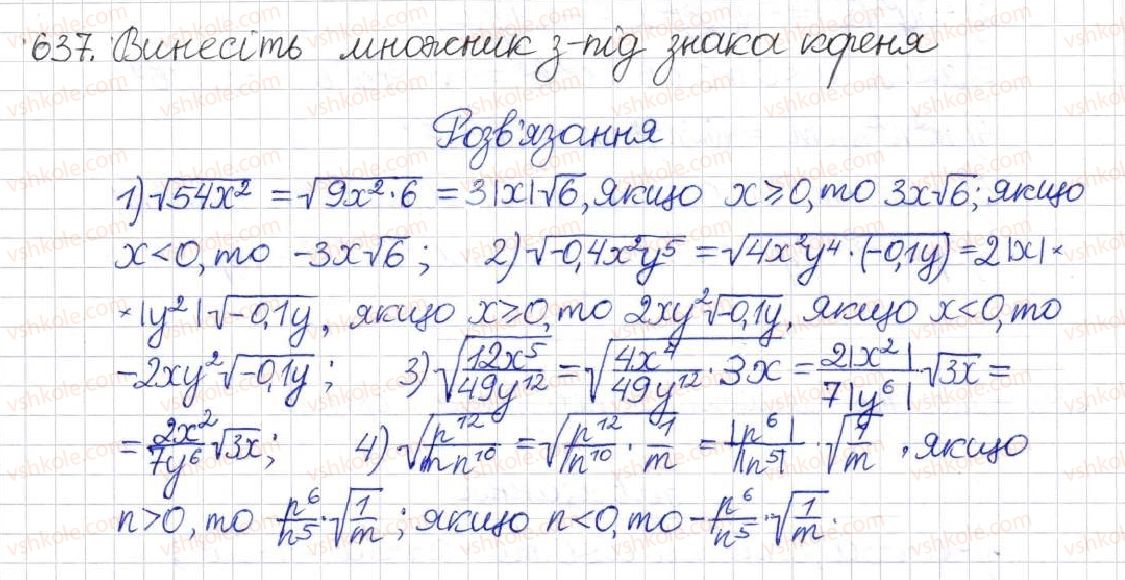 637. Винесіть множник з-під знака кореня
Розв'язання
1) √54x² = √9x²·6 = 3|x|√6, якщо x≥0, то 3x√6; якщо
x<0, то -3x√6; 2) √-0,4x²y⁵ = √4x²y⁴·(-0,1y) = 2|x|×
×|y²|√-0,1y, якщо x≥0, то 2xy²√-0,1y, якщо x<0, то
-2xy²√-0,1y; 3) √12x⁵/49y¹² = √4x⁴/49y¹²·3x = 2|x²|/7|y⁶|·√3x =
= 2x²/7y⁶√3x; 4) √p¹²/mn¹⁰ = √p¹²/n¹⁰·1/m = |p⁶|/|n⁵|·√1/m, якщо
n>0, то p⁶/n⁵·√1/m; якщо n<0, то -p⁶/n⁵·√1/m.